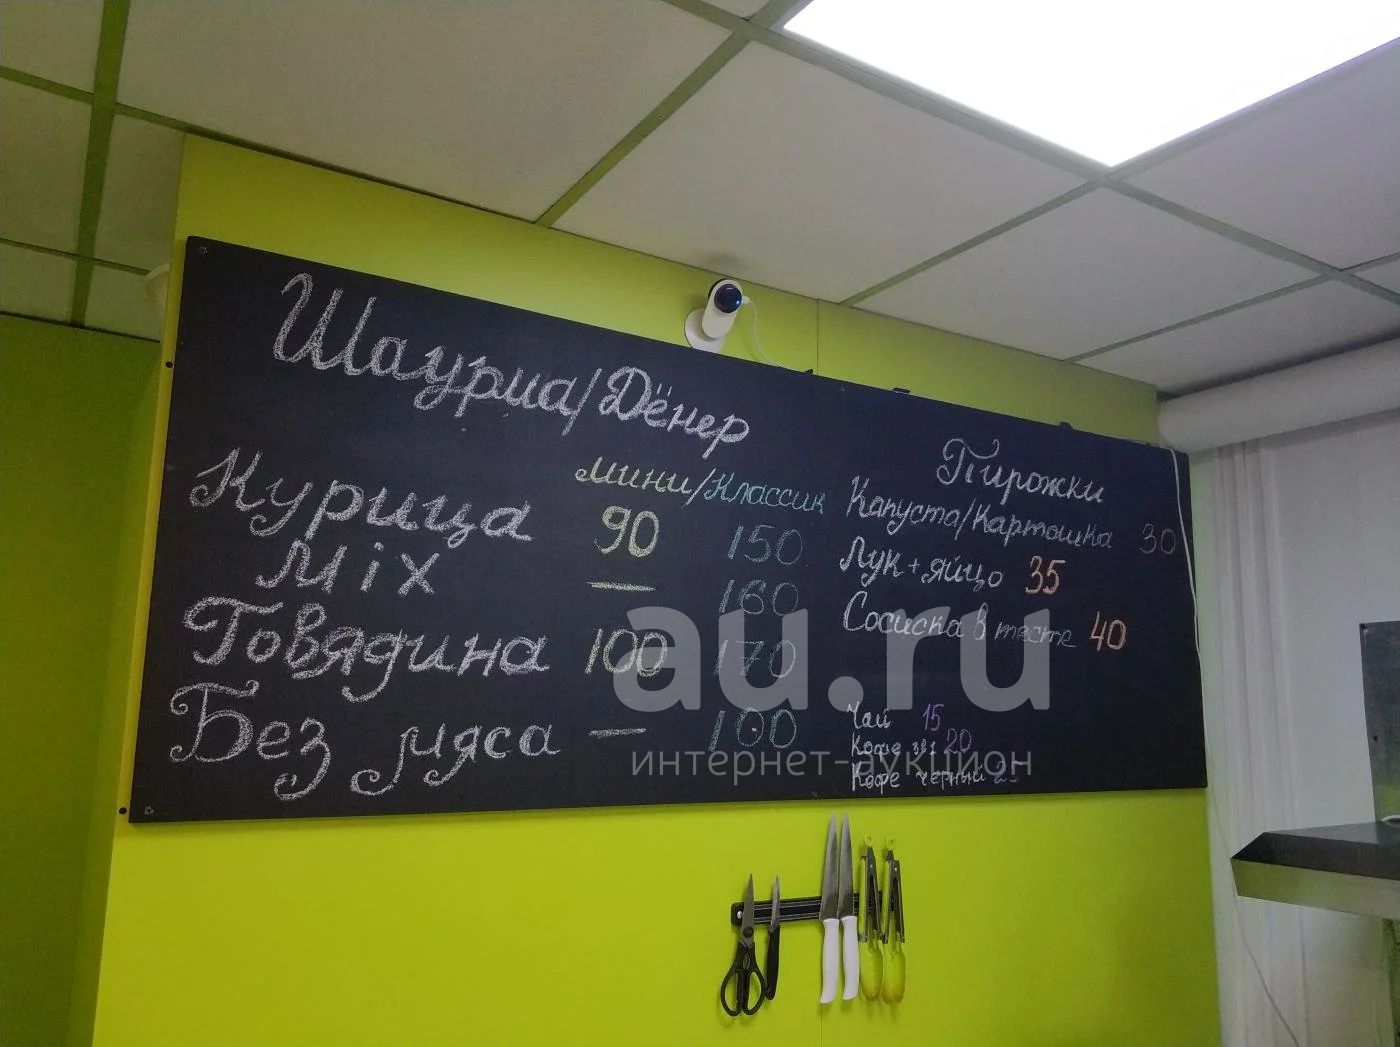 Шаурма/Дёнер
мини/Классик
Курица 90 150
Mix — 160
Говядина 100 170
Без мяса — 100
Пирожки
Капуста/Картошка 30
Лук + яйцо 35
Сосиска в тесте 40
Чай 15
Кофе 3в1 20
Кофе черный 25
au.ru
интернет-аукцион